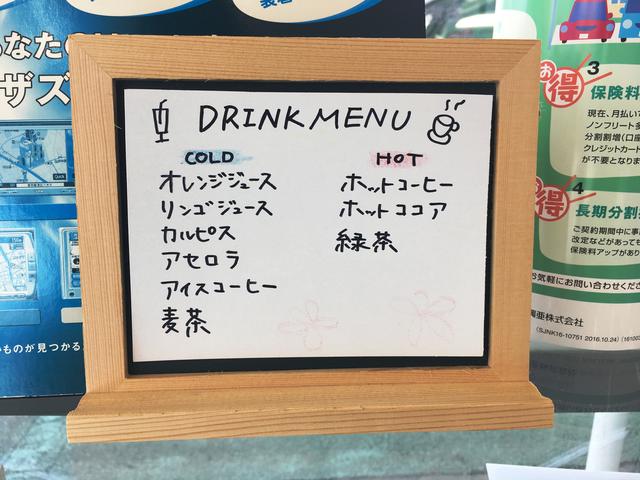 DRINK MENU
COLD
オレンジジュース
リンゴジュース
カルピス
アセロラ
アイスコーヒー
麦茶
HOT
ホットコーヒー
ホットココア
緑茶
あなたの
ザズ
ものが見つかる
お得
3
保険料
現在、月払い
ノンフリート多
分割割増(口座
クレジットカード
が不要となります
お得
4
長期分割
ご契約期間中に事
改定などがあっても
保険料アップがあり
お気軽にお問い合わせくださ
興亜株式会社
(SJNK16-10751 2016.10.24)